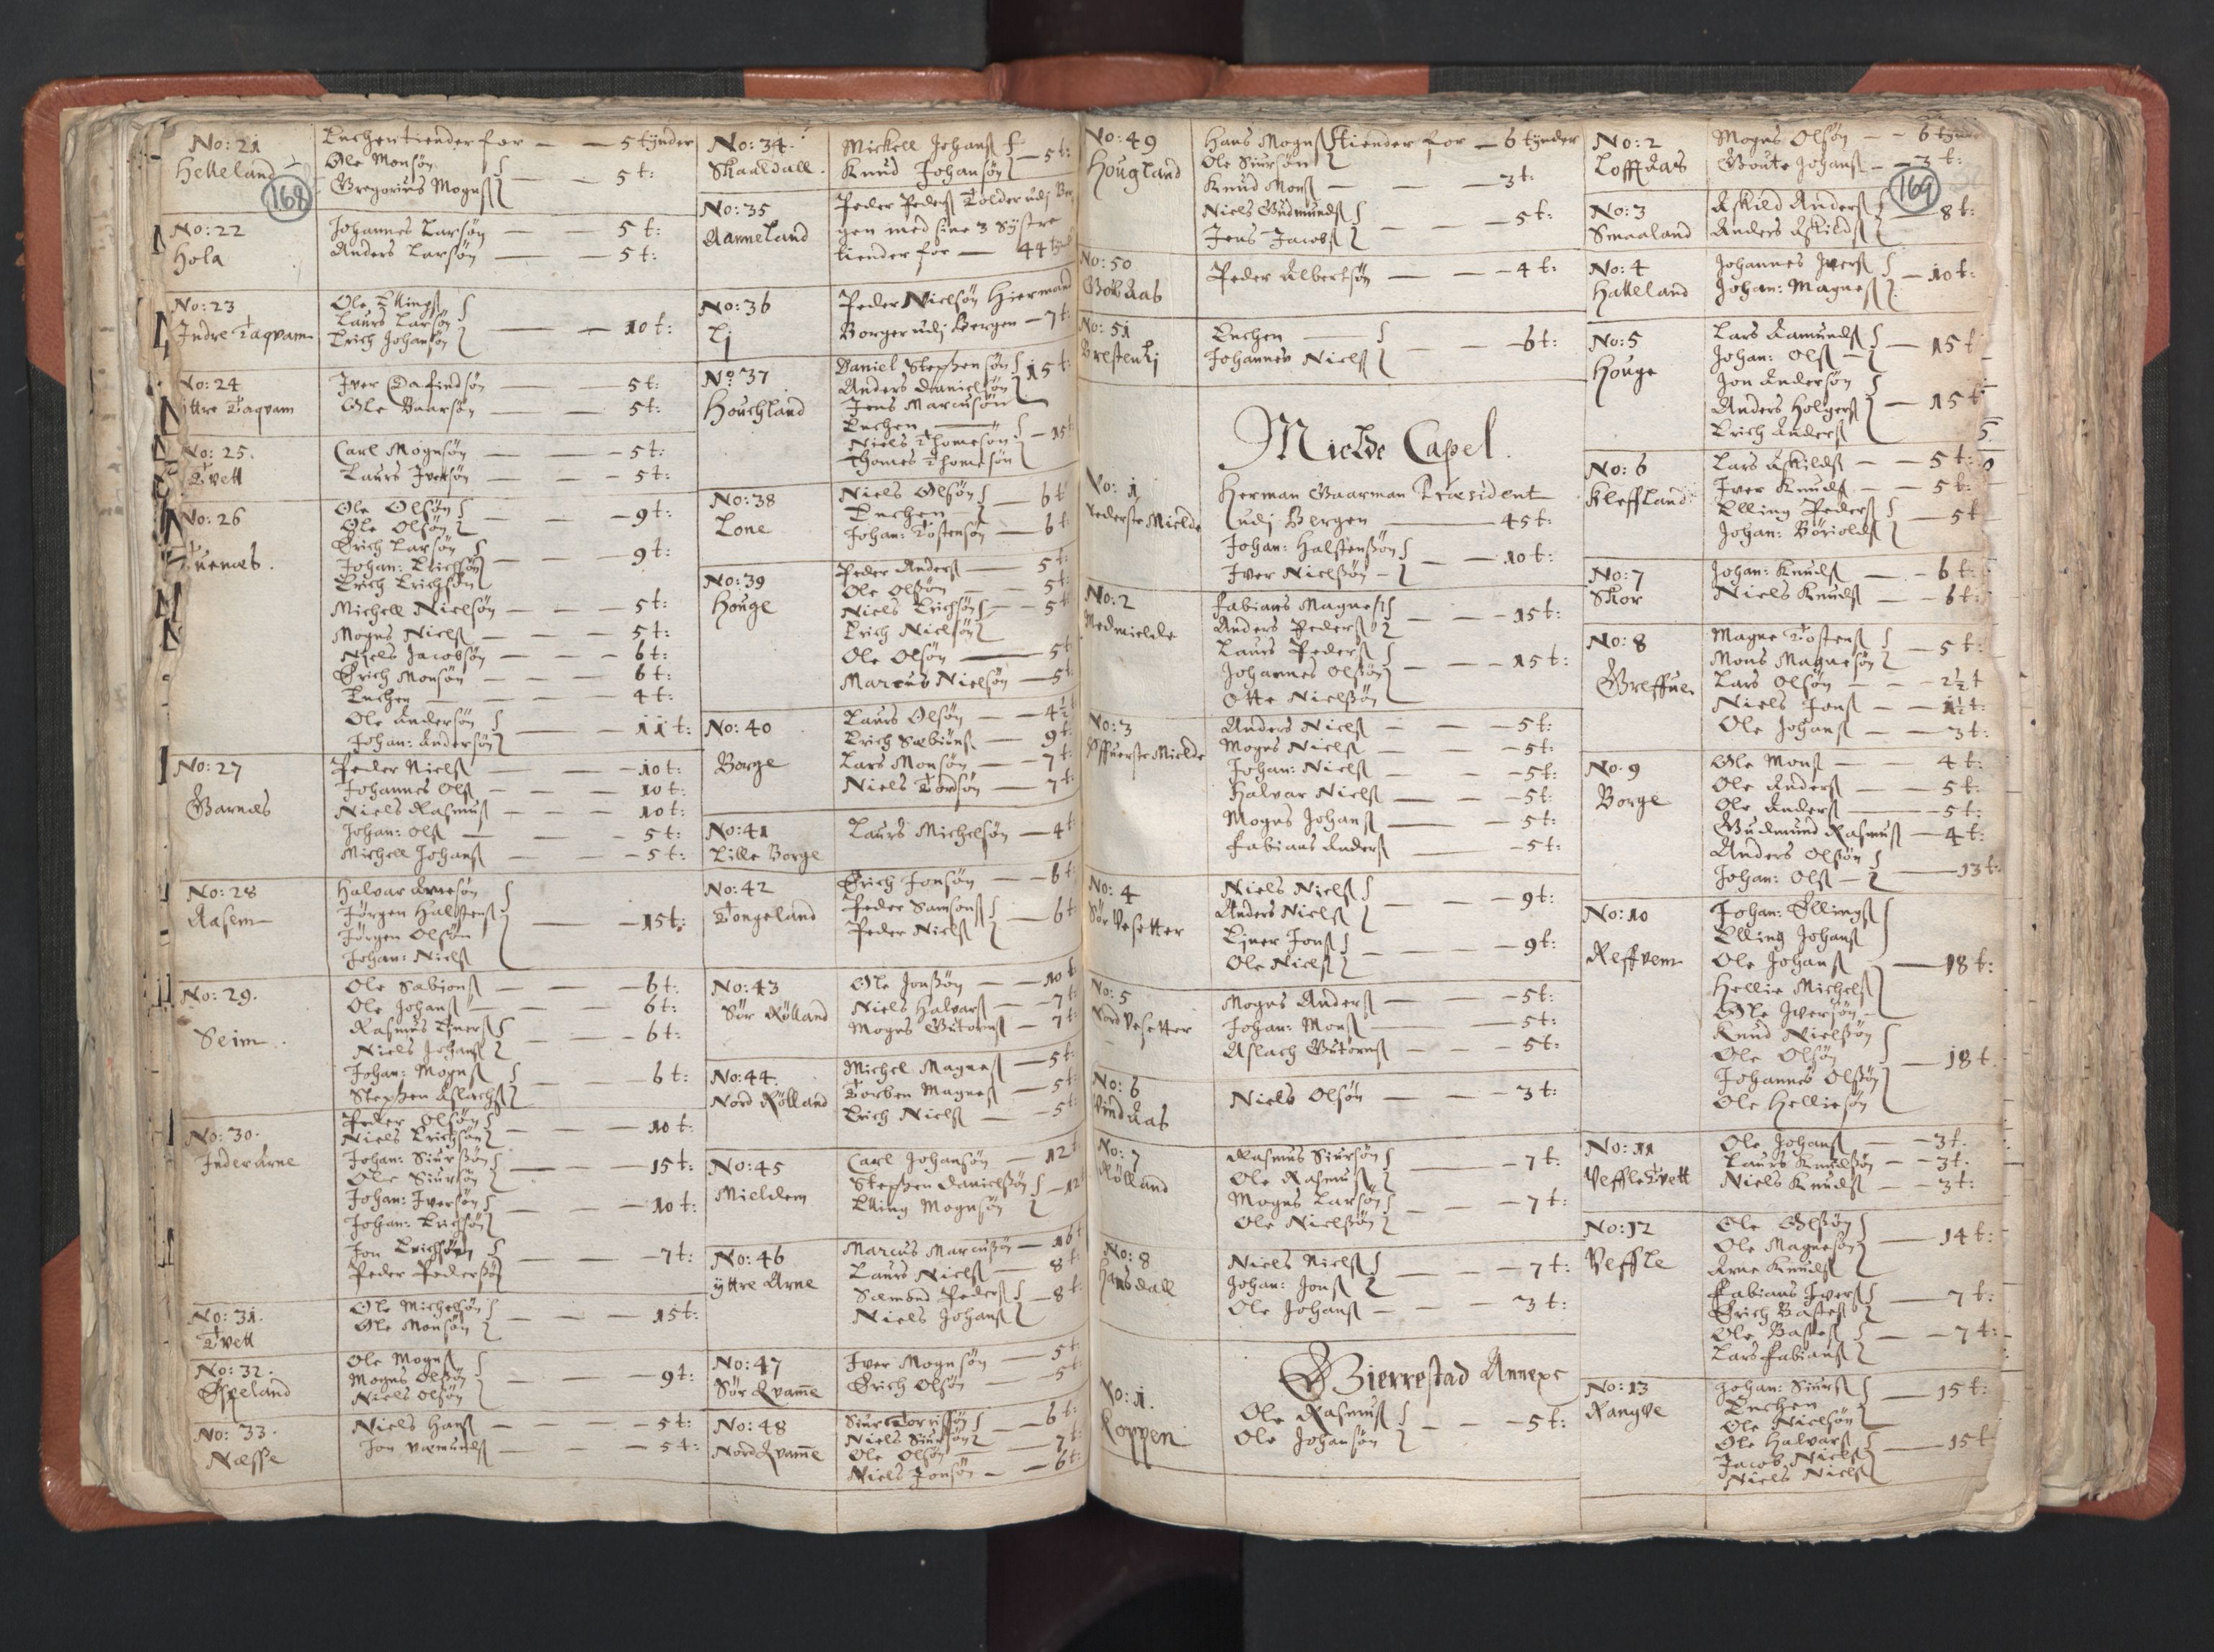 168
No: 21
Helleland
Enchen tiender for — 5 tynder
Ole Monsøn
Gregorius Mognß — 5 t:
No: 22
Hola
Johannes Larsøn — 5 t:
Anders Larsøn — 5 t:
No: 23
Indre Taqvam
Ole Ellingß
Laurs Larsøn
Erich Johansøn — 10 t:
No: 24
ÿttre Taqvam
Iver Dafindsøn — 5 t:
Ole Baarsøn — 5 t:
No: 25.
Tvett
Carl Mognsøn — 5 t:
Laurs Iversøn — 5 t:
No: 26
Tuenæs.
Ole Olsøn
Ole Olsøn — 9 t:
Erich Larsøn
Johan: Erichsøn
Erich Erichsøn — 9 t:
Michell Nielsøn — 5 t:
Mogns Nielß — 5 t:
Niels Jacobsøn — 6 t:
Erich Monsøn — 6 t:
Enchen — 4 t:
Ole Andersøn
Johan: Andersøn — 11 t:
No: 27
Garnæs
Peder Nielß — 10 t:
Johannes Olß — 10 t:
Niels Rasmuß — 10 t:
Johan: Olß — 5 t:
Michell Johanß — 5 t:
No: 28
Aasem
Halvar Arnesøn
Jørgen Halstenß
Jørgen Olsøn
Johan: Nielß — 15 t:
No: 29.
Seim
Ole Sæbionß — 6 t:
Ole Johanß — 6 t:
Rasmus Enerß
Niels Johanß — 6 t:
Johan: Mognß
Stephen Aslachß — 6 t:
No: 30.
Inder Arne
Peder Olsøn
Niels Erichsøn — 10 t:
Johan: Siurßøn
Ole Siursøn — 15 t:
Johan: Iversøn
Johan: Erichsøn — 10 t:
Jon Erichsøn
Peder Pederßøn — 7 t:
No: 31.
Tvett
Ole Michelsøn
Ole Monsøn — 15 t:
No: 32.
Espeland
Ole Mognß
Mogns Olsøn
Niels Olsøn — 9 t:
No: 33.
Næsse
Niels Hanß — 5 t:
Jon Væmundß — 5 t:
No: 34.
Skaaldall.
Mickell Johanß
Knud Johansøn — 5 t:
No: 35
Aanneland
Peder Pederß Tolder udj Ber
gen med sine 3 Systre
tiender for — 44 tynd
No: 36
Lj
Peder Nielsøn Hiermand
Borger udj Bergen — 7 t:
No: 37
Houchland
Daniel Stephensøn
Anders Danielsøn
Jens Marcusøn — 15 t:
Enchen
Niels Thomesøn
Thomes Thomesøn — 15 t
No: 38
Lone
Niels Olsøn
Enchen — 6 t
Johan: Tostensøn — 6 t
No: 39
Houge
Peder Anderß — 5 t:
Ole Olsøn — 5 t:
Niels Erichsøn
Erich Nielsøn — 5 t
Ole Olsøn — 5 t
Marcus Nielsøn — 5 t
No: 40
Borge
Laurs Olsøn — 4½ t
Erich Sæbiønß — 9 t:
Lars Monsøn — 7 t:
Niels Tordsøn — 7 t:
No: 41
Lille Borge
Laurs Michelsøn — 4 t
No: 42
Tongeland
Erich Jonsøn — 6 t
Peder Samsonß
Peder Nielß — 6 t
No: 43
Sør Rølland
Ole Jonßøn — 10 t
Niels Halvarß — 7 t:
Mogns Gutormß — 7 t:
No: 44.
Nord Rølland
Michel Magneß — 5 t:
Torben Magneß — 5 t:
Erich Nielß — 5 t:
No: 45
Mieldem
Carl Johansøn — 12 t
Stephen Danielßøn
Elling Mognsøn — 12
No: 46
ÿttre Arne
Marcus Marcusøn — 16 t
Laurs Nielß — 8 t:
Sæmond Pederß
Niels Johanß — 8 t:
No: 47
Sør Qvamme
Iver Mognsøn — 5 t:
Erich Olsøn — 5 t:
No: 48
Nord Qvamme
Siur Torrisßøn
Niels Siursøn — 6 t:
Ole Olsøn — 7 t:
Niels Jonsøn — 6 t:
169
No: 49
Hougland
Hans Mognß tiender for — 6 tynder
Ole Siursøn
Knud Monß — 3 t:
Niels Gudmundß
Jens Jacobß — 5 t:
No: 50
Gob Aas
Peder Albertsøn — 4 t:
No: 51
Brestenlj
Enchen
Johannes Nielß — 6 t:
Mielde Capel.
No: 1
Nederste Mielde
Herman Gaarman Præsident
udj Bergen — 45 t:
Johan: Halstenßøn
Iver Nielßøn — 10 t:
No: 2
Medmielde
Fabians Magneß
Anders Pederß — 15 t:
Laurs Pederß
Johannes Olßøn
Otte Nielßøn — 15 t:
No: 3
Øffuerste Mielde
Anders Nielß — 5 t:
Mogns Nielß — 5 t:
Johan: Nielß — 5 t:
Halvar Nielß — 5 t:
Mogns Johanß — 5 t:
Fabians Anderß — 5 t:
No: 4
Sør Vesetter
Niels Nielß
Anders Nielß — 9 t:
Ejner Jonß
Ole Nielß — 9 t:
No: 5
Nord Vesetter
Mogns Anderß — 5 t:
Johan: Monß — 5 t:
Aslach Gutormß — 5 t:
No: 6
Vind Aas
Niels Olsøn — 3 t:
No: 7
Rølland
Rasmus Siursøn
Ole Rasmuß — 7 t:
Mogns Larsøn
Ole Nielßøn — 7 t:
No: 8
Hansdall
Niels Nielß
Johan: Jonß — 7 t:
Ole Johanß — 3 t:
Gierrestad Annexe
No: 1.
Koppen
Ole Rasmuß
Ole Johansøn — 5 t:
No: 2
Loffaas
Mogns Olsøn — 6 tynder
Goute Johanß — 3 t:
No: 3
Smaaland
Askild Anderß
Anders Askildß — 8 t:
No: 4
Halleland
Johannes Iverß
Johan: Magneß — 10 t:
No: 5
Houge
Lars Aamundß
Johan: Olß — 15 t
Jon Andersøn
Anders Holgerß
Erich Anderß — 15 t
No: 6
Kleffland
Lars Askildß — 5 t:
Iver Knudß — 5 t:
Elling Pederß
Johan: Børioldß — 5 t
No: 7
Skor
Johan: Knudß — 6 t:
Niels Knudß — 6 t:
No: 8
Greffue
Magne Tostenß
Mons Magnesøn — 5 t:
Lars Olsøn — 2½ t
Niels Jonß — 1½ t:
Ole Johanß — 3 t:
No. 9
Borge
Ole Monß — 4 t:
Ole Anderß — 5 t:
Ole Anderß — 5 t:
Gudmund Rasmuß — 4 t:
Anders Olsøn
Johan: Olß — 13 t:
No: 10
Reffvem
Johan: Ellingß
Elling Johanß
Ole Johanß — 18 t:
Hellie Michelß
Ole Iversøn
Knud Nielßøn
Ole Olsøn — 18 t
Johannes Olßøn
Ole Helliesøn
No: 11
Veffle Tvett
Ole Johanß — 3 t.
Laurs Knudßøn — 3 t.
Niels Knudß — 3 t:
No: 12
Veffle
Ole Olßøn
Ole Magnesøn
Arne Knudß — 14 t:
Fabians Iverß
Erich Basteß — 7 t:
Ole Basteß
Lars Fabianß — 7 t:
No: 13
Rangve
Johan: Siurß
Enchen
Ole Nielsøn — 15 t:
Ole Halvarß
Jacob Nielß
Niels Nielß — 15 t